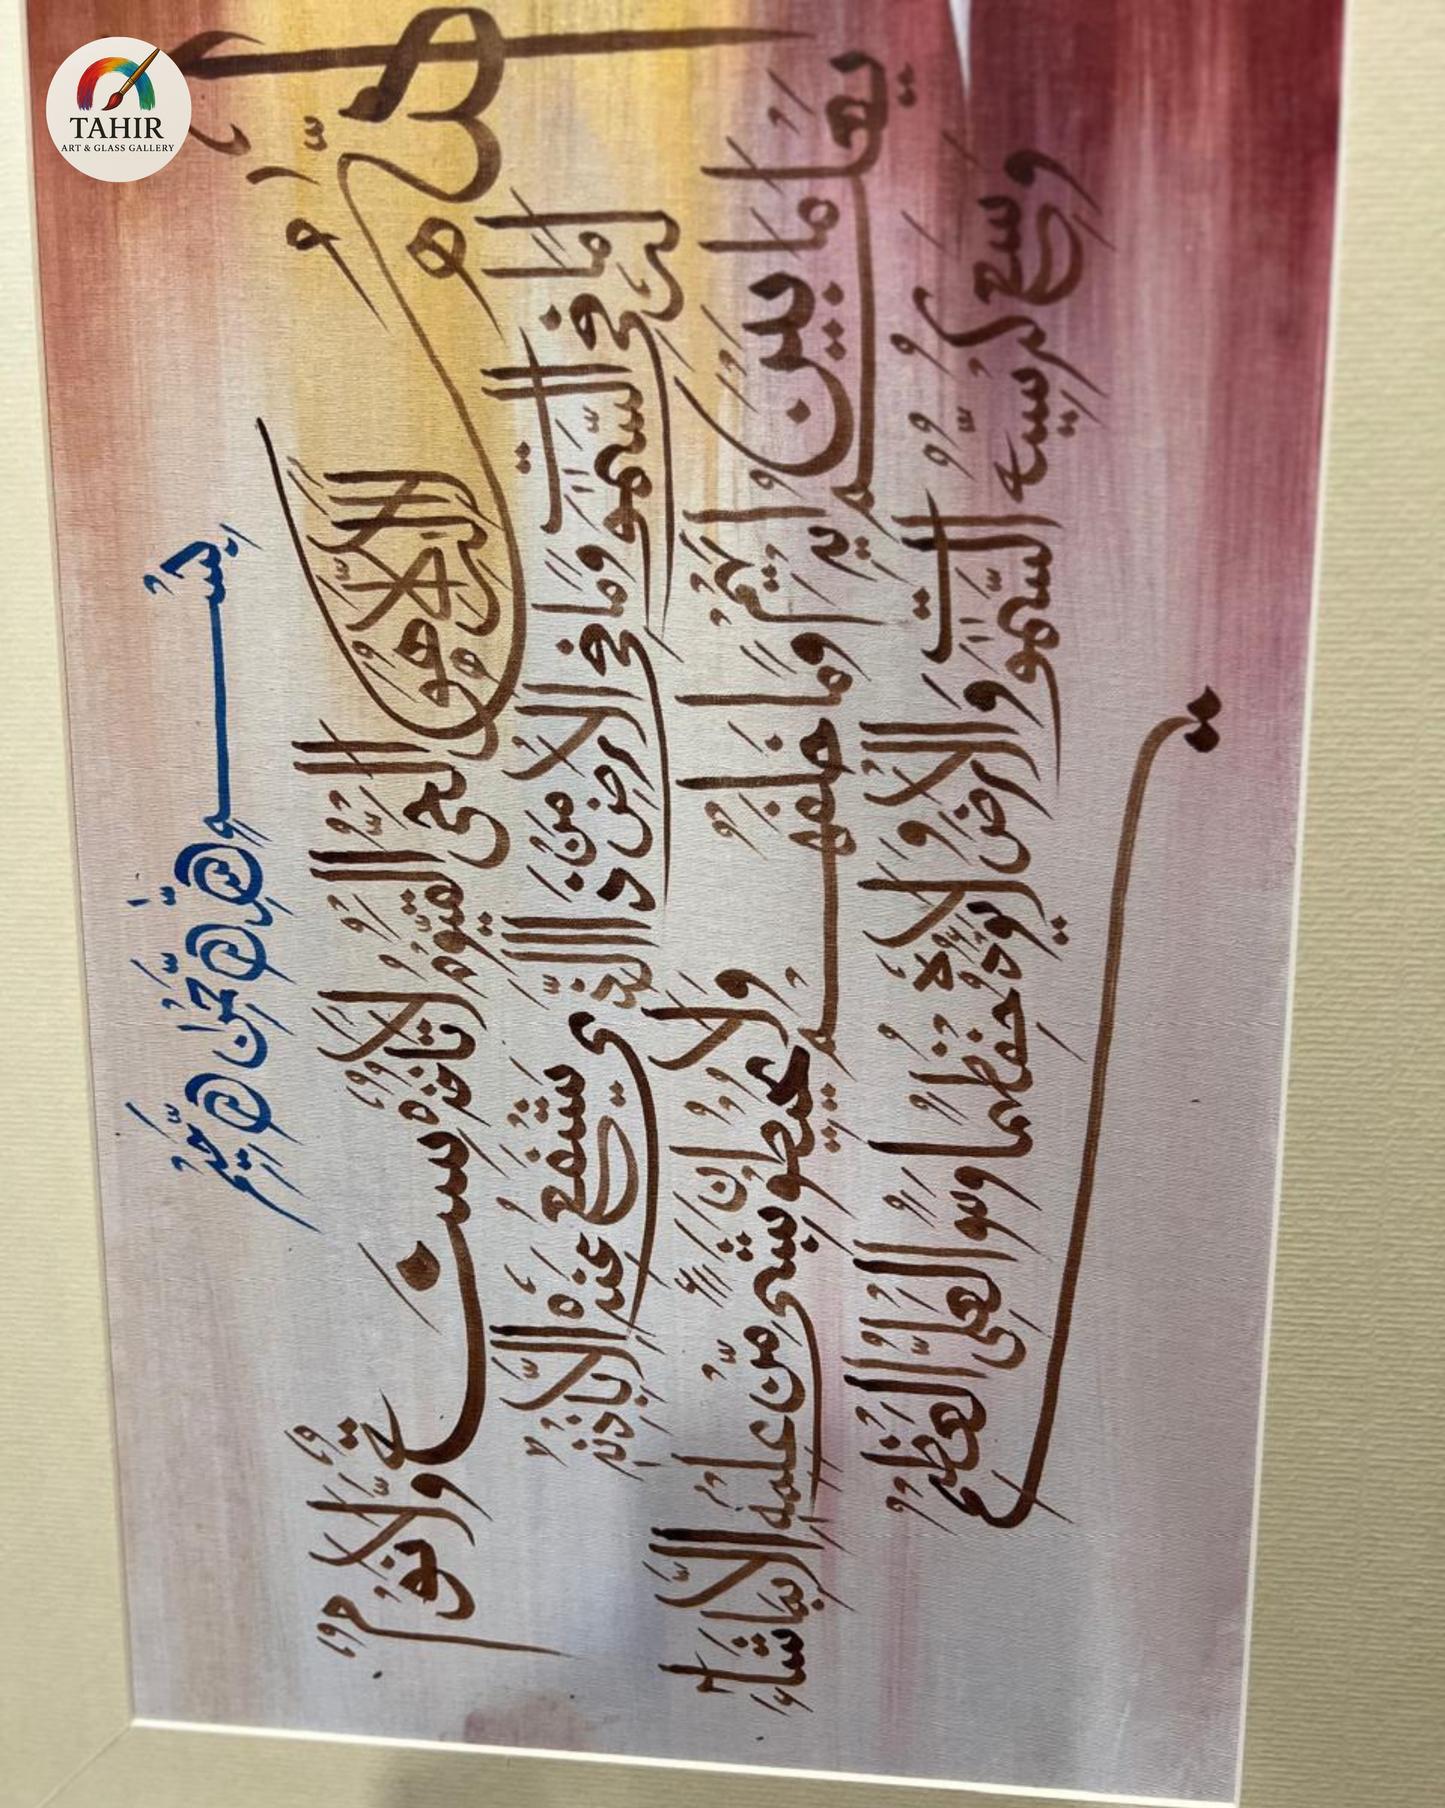 TAHIR
ART & GLASS GALLERY
بِسْمِ اللّٰهِ الرَّحْمٰنِ الرَّحِيمِ
اَللّٰهُ لَا إِلٰهَ إِلَّا هُوَ الْحَيُّ الْقَيُّومُ لَا تَأْخُذُهُ سِنَةٌ وَّلَا نَوْمٌ
لَهُ مَا فِي السَّمٰوٰتِ وَمَا فِي الْأَرْضِ مَنْ ذَا الَّذِي يَشْفَعُ عِنْدَهُ إِلَّا بِإِذْنِهِ
يَعْلَمُ مَا بَيْنَ أَيْدِيهِمْ وَمَا خَلْفَهُمْ وَلَا يُحِيطُونَ بِشَيْءٍ مِّنْ عِلْمِهِ إِلَّا بِمَا شَاءَ
وَسِعَ كُرْسِيُّهُ السَّمٰوٰتِ وَالْأَرْضَ وَلَا يَئُودُهُ حِفْظُهُمَا وَهُوَ الْعَلِيُّ الْعَظِيمُ